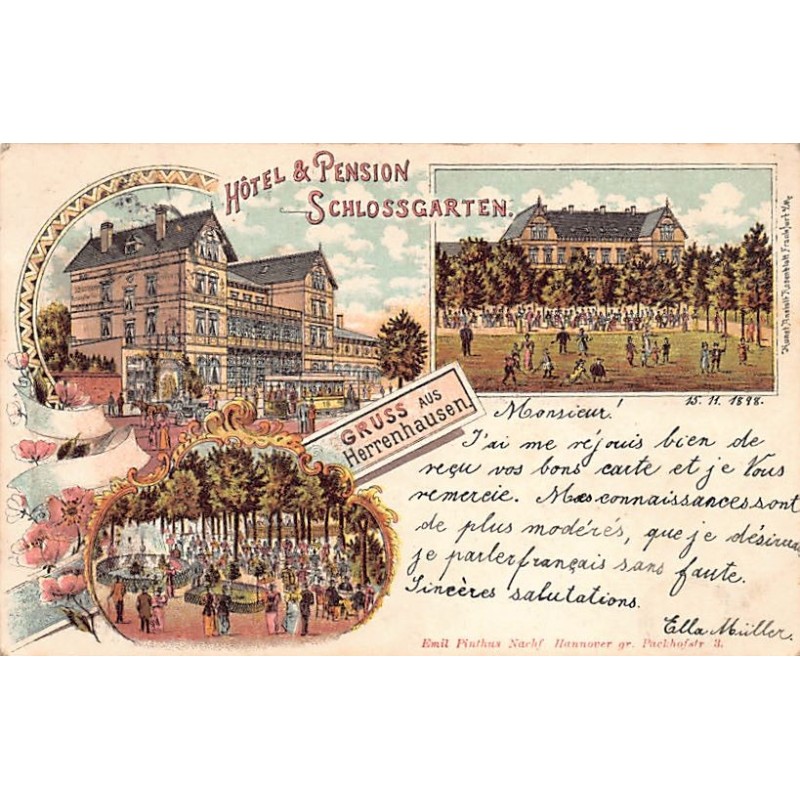 HÔTEL & PENSION
SCHLOSSGARTEN.
GRUSS AUS
Herrenhausen.
15. 11. 1898.
Monsieur!
J'ai me réjouis bien de
reçu vos bons carte et je Vous
remercie. Mes connaissances sont
de plus modérés, que je désirua
je parler français sans faute.
Sincères salutations.
Ella Müller.
Emil Pinthus Nachf Hannover gr. Packhofstr 3.
Kunst Anstalt Rosenblatt Frankfurt a/M